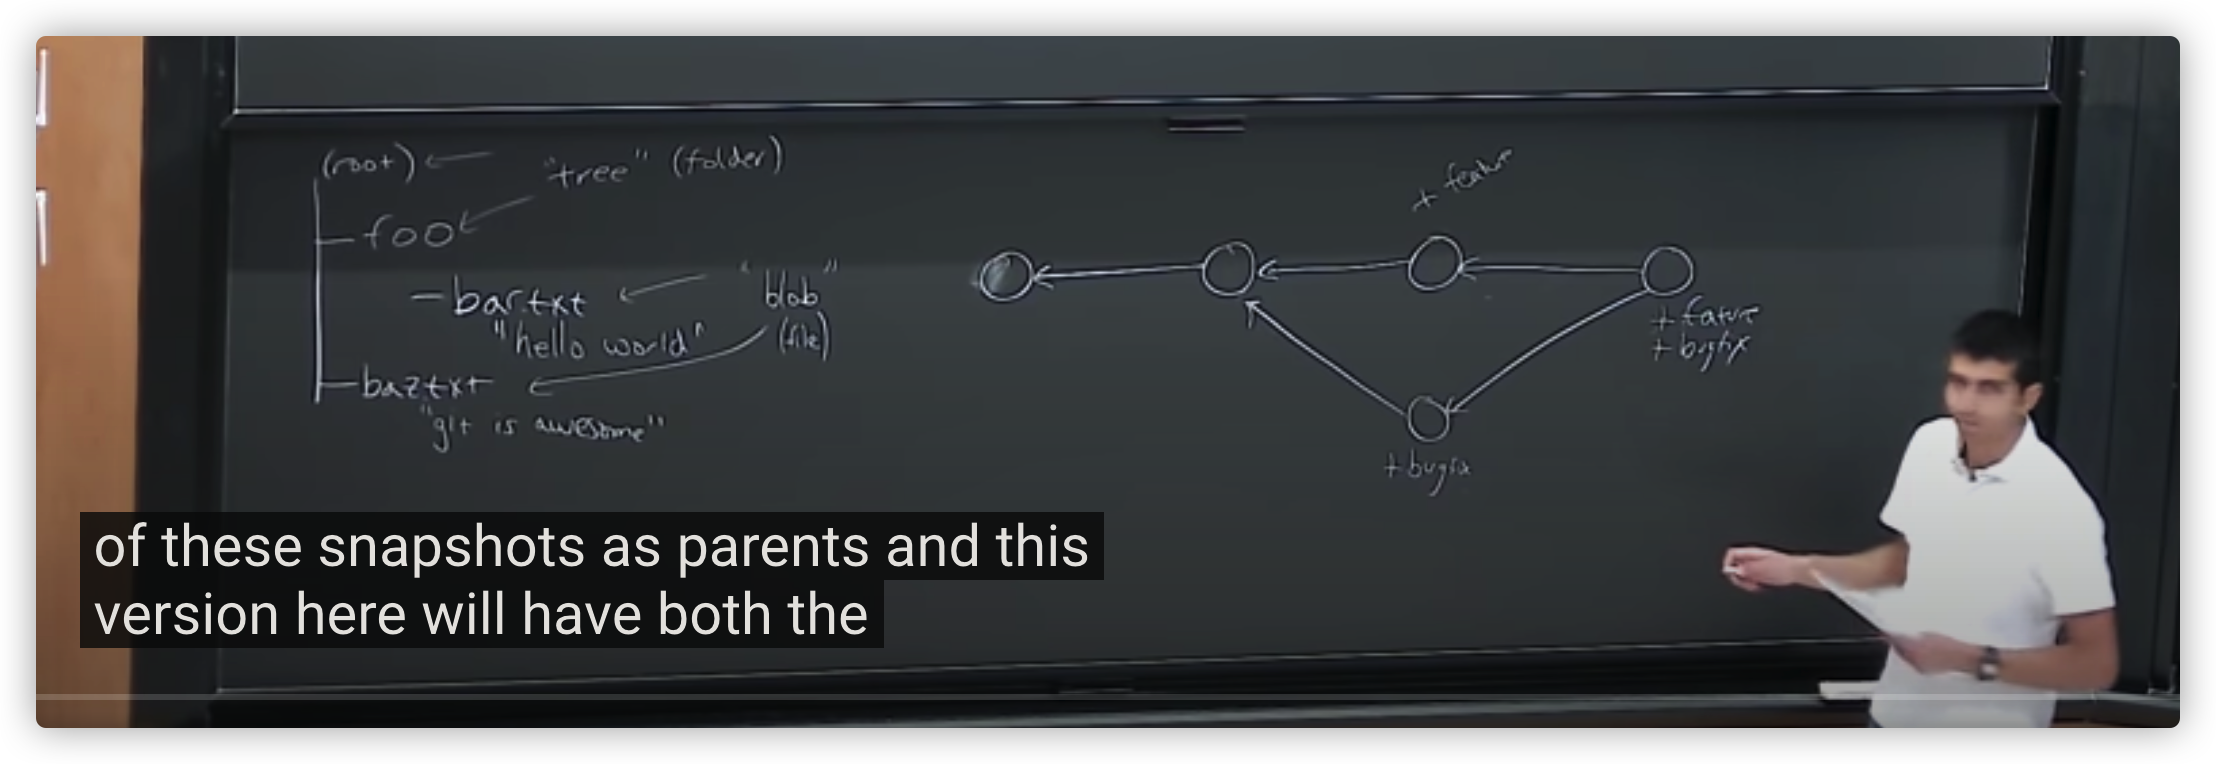 (root)
"tree" (folder)
foo
bar.txt
"blob"
(file)
"hello world"
baz.txt
"git is awesome"
+ feature
+ fature
+ bugfix
+ bugfix
of these snapshots as parents and this
version here will have both the